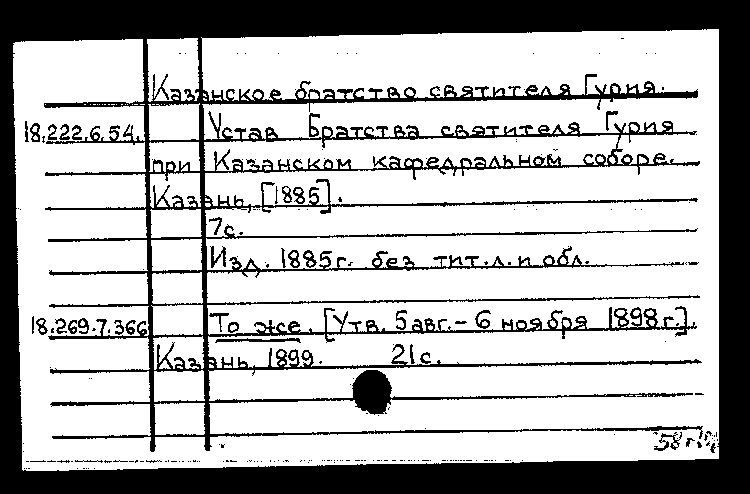 Казанское братство святителя Гурия.
18.222.6.54. Устав Братства святителя Гурия
при Казанском кафедральном соборе.
Казань, [1885].
7с.
Изд. 1885г. без тит.л. и обл.
18.269.7.366 То же. [Утв. 5 авг. – 6 ноября 1898 г.].
Казань, 1899. 21с.